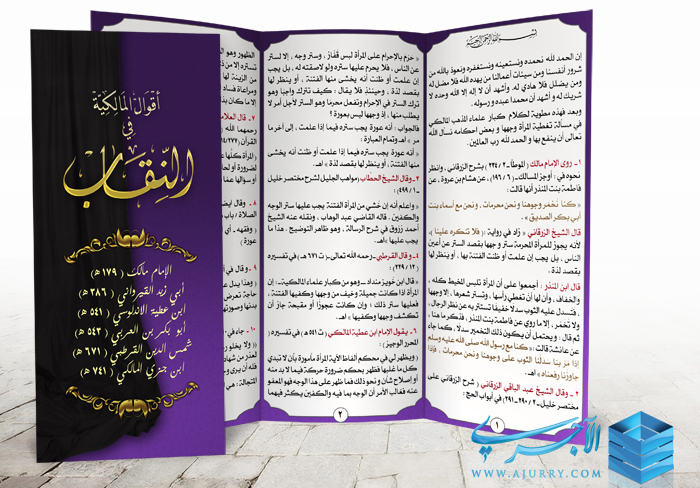 أقوال المالكية
في
النقاب
الإمام مالك (١٧٩ هـ)
أبي زيد القيرواني (٣٨٦ هـ)
ابن عطية الأندلوسي (٥٤١ هـ)
أبو بكر بن العربي (٥٤٣ هـ)
شمس الدين القرطبي (٦٧١ هـ)
ابن جزي المالكي (٧٤١ هـ)
بسم الله الرحمن الرحيم
إن الحمد لله نحمده ونستعينه ونستغفره ونعوذ بالله من
شرور أنفسنا ومن سيئات أعمالنا من يهده الله فلا مضل له
ومن يضلل فلا هادي له، وأشهد أن لا إله إلا الله وحده لا
شريك له و أشهد أن محمدا عبده و رسوله.
وبعد فهذه مطوية لكلام كبار علماء المذهب المالكي
في مسألة تغطية المرأة وجهها و بعض أحكامه نسأل الله
تعالى أن ينفع بها والحمد لله رب العالمين.
١- روى الإمام مالك (الموطأ ٢/٢٣٤ بشرح الزرقاني، وانظر
نحوه في : أوجز المسالك ٦/١٩٦)، عن هشام بن عروة ، عن
فاطمة بنت المنذر أنها قالت:
« كنا نخمر وجوهنا ونحن محرمات ، ونحن مع أسماء بنت
أبي بكر الصديق ».
قال الشيخ الزرقاني : زاد في رواية : ( فلا تنكره علينا )،
لأنه يجوز للمرأة المحرمة ستر وجهها بقصد الستر عن أعين
الناس ، بل يجب إن علمت أو ظنت الفتنة بها ، أو ينظر لها
بقصد لذة .
قال ابن المنذر : أجمعوا على أن المرأة تلبس المخيط كله ،
والخفاف، وأن لها أن تغطي رأسها ، وتستر شعرها ، إلا وجهها
، فتسدل عليه الثوب سدلا خفيفا تستتر به عن نظر الرجال ،
ولا تخمر ، إلا ما روي عن فاطمة بنت المنذر ، فذكر ما هنا
ثم قال : ويحتمل أن يكون ذلك التخمير سدلا ، كما جاء
عن عائشة قالت : « كنا مع رسول الله صلى الله عليه وسلم
إذا مر بنا سدلنا الثوب على وجوهنا ونحن محرمات ، فإذا
جاوزنا رفعناه » اهـ.
٢ - وقال الشيخ عبد الباقي الزرقاني ( شرح الزرقاني على
مختصر خليل - ٢/٢٩٠ - ٢٩١) في أبواب الحج :
١
« حرم بالإحرام على المرأة لبس قفاز ، وستر وجه ، إلا لستر
عن الناس ، فلا يحرم عليها ستره ولو لاصقته له ، بل يجب
إن علمت أو ظنت أنه يخشى منها الفتنة ، أو ينظر لها
بقصد لذة ، وحينئذ فلا يقال : كيف تترك واجبا وهو
ترك الستر في الإحرام وتفعل محرما وهو الستر لأجل أمر لا
يطلب منها ، إذ وجهها ليس بعورة ؟
فالجواب : أنه عورة يجب ستره فيما إذا علمت ، إلى آخر ما
مر » اهـ، وتمام العبارة :
« أنه عورة يجب ستره فيما إذا علمت أو ظنت أنه يخشى
منها الفتنة، أو ينظر لها بقصد لذة » اهـ.
٣- وقال الشيخ الحطاب (مواهب الجليل لشرح مختصر خليل
- ١/٤٩٩) :
« واعلم أنه إن خشي من المرأة الفتنة يجب عليها ستر الوجه
والكفين . قاله القاضي عبد الوهاب ، ونقله عنه الشيخ
أحمد زروق في شرح الرسالة ، وهو ظاهر التوضيح . هذا ما
يجب عليها » اهـ.
٤- وقال القرطبي -رحمه الله تعالى- ت ٦٧١ هـ في تفسيره
( ١٢ / ٢٢٩ ) :
« قال ابن خويز منداد - وهو من كبار علماء المالكية - : إن
المرأة اذا كانت جميلة وخيف من وجهها وكفيها الفتنة ،
فعليها ستر ذلك ؛ وإن كانت عجوزا أو مقبحة جاز أن
تكشف وجهها وكفيها » اهـ .
٦ - يقول الإمام ابن عطية المالكي ( ت ٥٤١ هـ ) في تفسيره (
المحرر الوجيز ) :
« ويظهر لي في محكم ألفاظ الآية المرأة مأمورة بأن لا تبدي
كل ما غلبها فظهر بحكم ضرورة حركة فيما لا بد منه
أو إصلاح شأن ونحو ذلك فما ظهر على هذا الوجه فهو المعفو
عنه فغالب الأمر أن الوجه بما فيه والكفين يكثر فيهما
٢
الآجري
WWW.AJURRY.COM